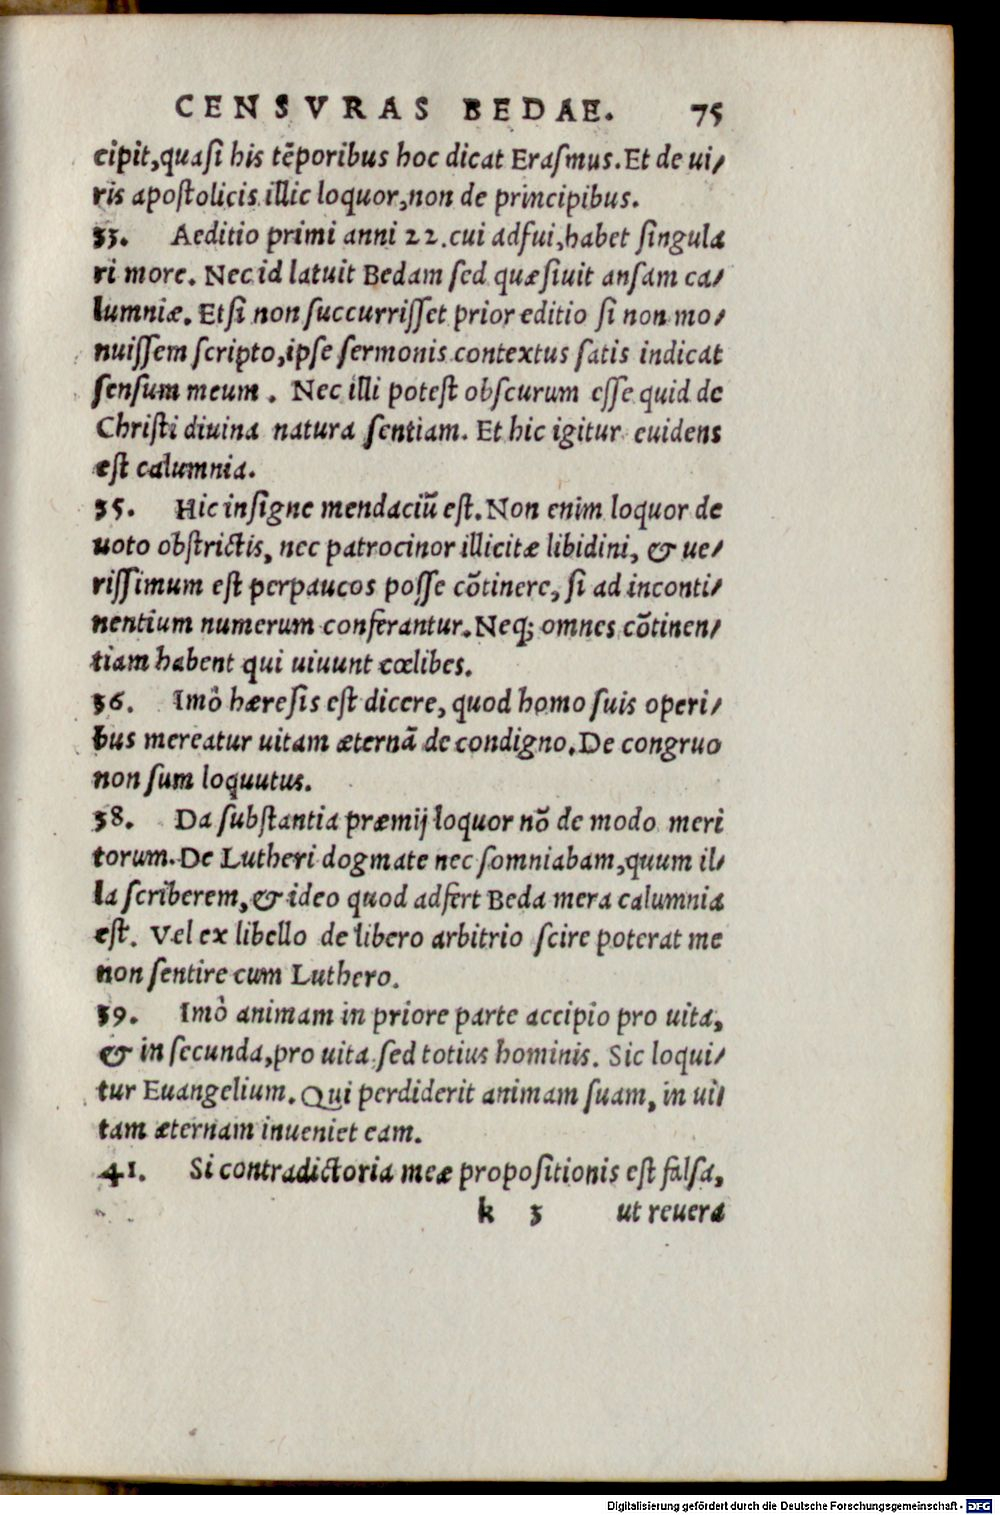 CENSVRAS BEDAE. 75
cipit,quasi his tẽporibus hoc dicat Erasmus.Et de ui/
ris apostolicis illic loquor,non de principibus.
33. Aeditio primi anni 22.cui adfui,habet singula
ri more. Nec id latuit Bedam sed quæsiuit ansam ca/
lumniæ. Etsi non succurrisset prior editio si non mo/
nuissem scripto,ipse sermonis contextus satis indicat
sensum meum . Nec illi potest obscurum esse quid de
Christi diuina natura sentiam. Et hic igitur euidens
est calumnia.
35. Hic insigne mendaciũ est. Non enim loquor de
uoto obstrictis, nec patrocinor illicitæ libidini, & ue/
rissimum est perpaucos posse cõtinere, si ad inconti/
nentium numerum conferantur. Neq; omnes cõtinen/
tiam habent qui uiuunt cœlibes.
36. Imò hæresis est dicere, quod homo suis operi/
bus mereatur uitam æternã de condigno. De congruo
non sum loquutus.
38. Da substantia præmij loquor nõ de modo meri
torum. De Lutheri dogmate nec somniabam,quum il/
la scriberem, & ideo quod adfert Beda mera calumnia
est. Vel ex libello de libero arbitrio scire poterat me
non sentire cum Luthero.
39. Imò animam in priore parte accipio pro uita,
& in secunda,pro uita sed totius hominis. Sic loqui/
tur Euangelium. Qui perdiderit animam suam, in ui/
tam æternam inueniet eam.
41. Si contradictoria meæ propositionis est falsa,
k 3 ut reuera
Digitalisierung gefördert durch die Deutsche Forschungsgemeinschaft - DFG